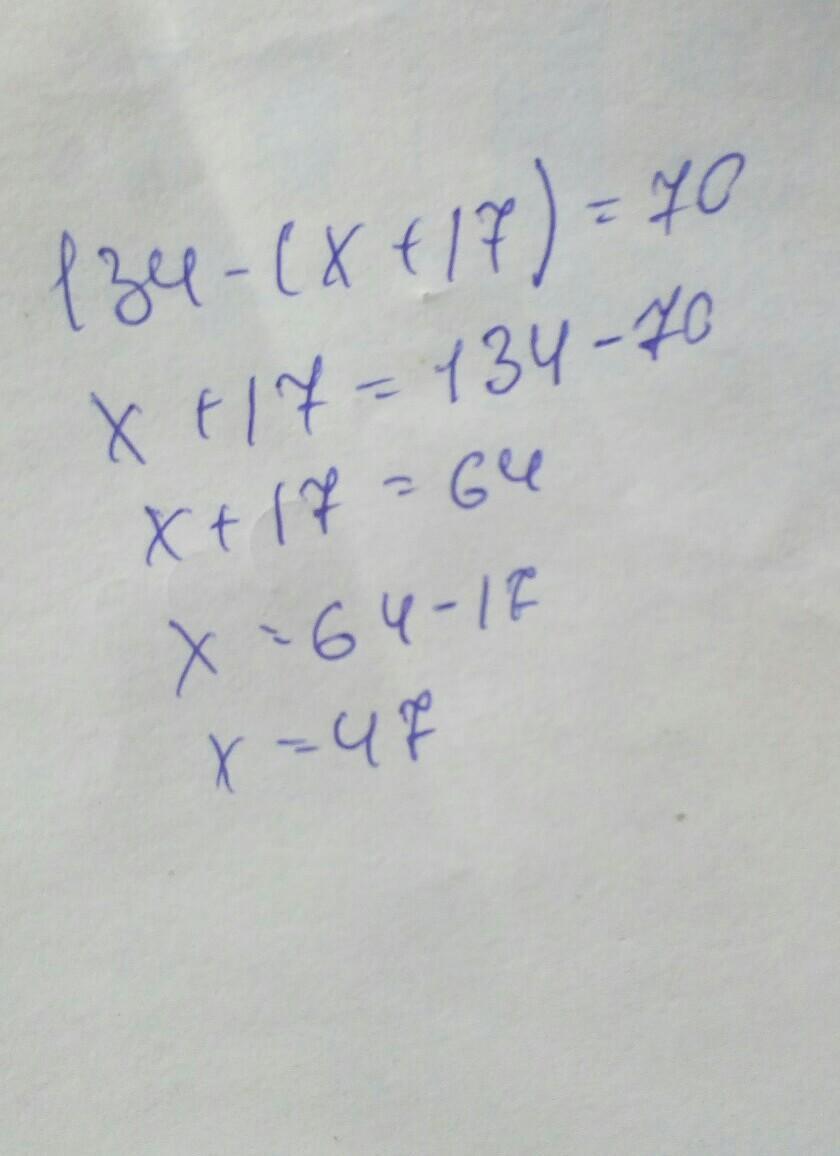 134-(x+17)=70
x+17=134-70
x+17=64
x=64-17
x=47